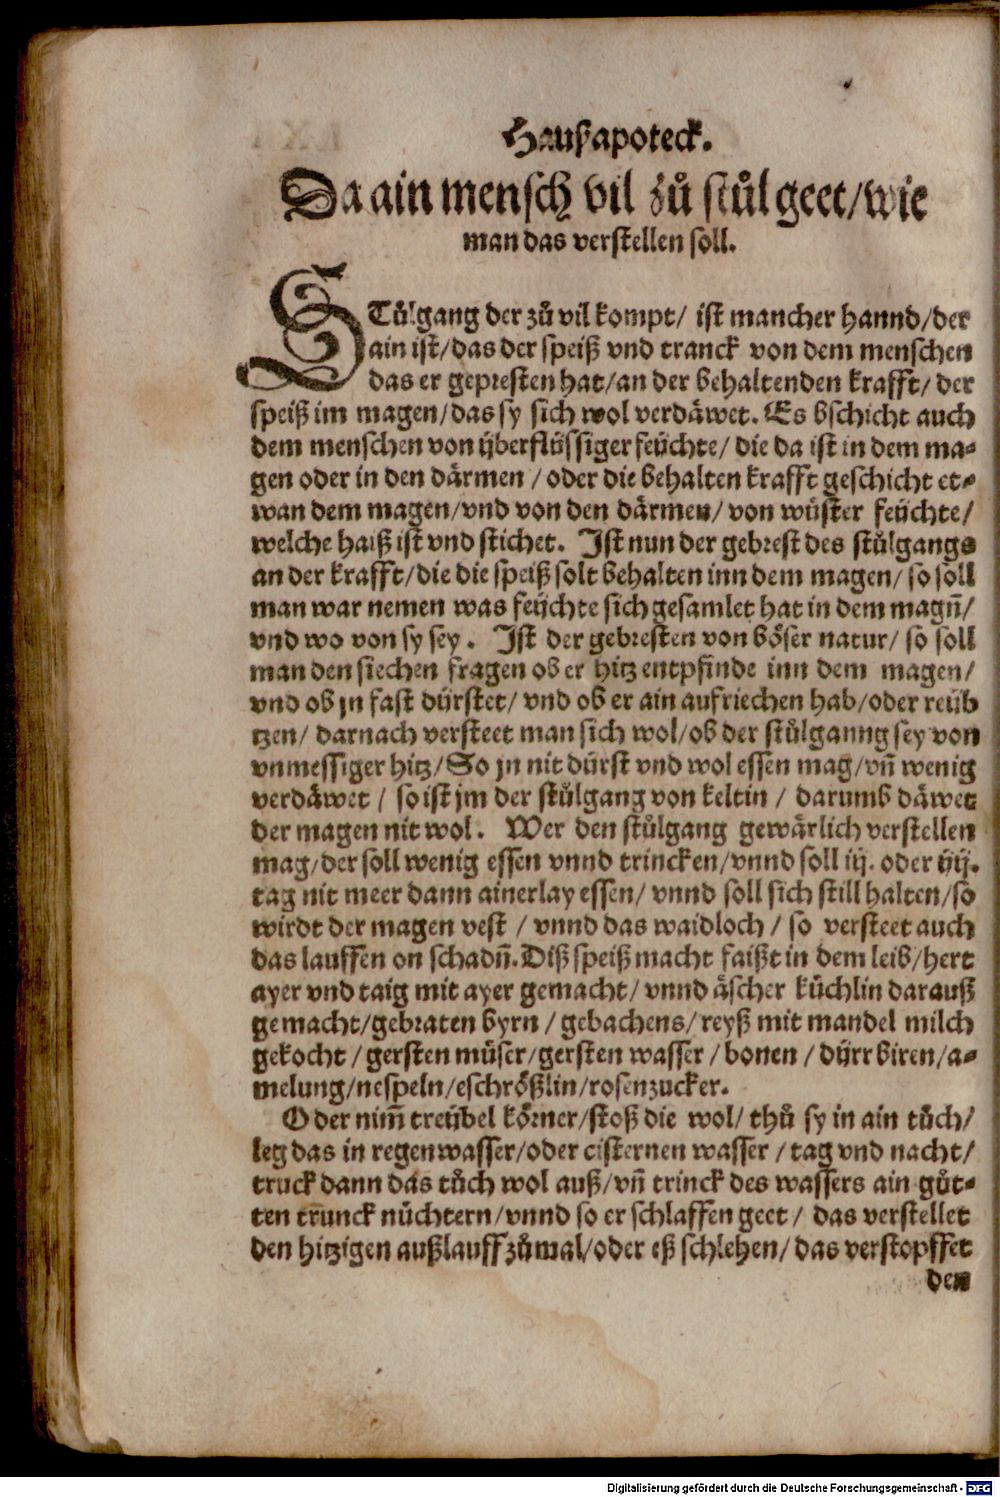 Haußapoteck.
Da ain mensch vil zů stůl geet/wie
man das verstellen soll.
STůlgang der zů vil kompt/ ist mancher hannd/der
ain ist/das der speiß vnd tranck von dem menschen
das er gepresten hat/an der behaltenden krafft/ der
speiß im magen/das sy sich wol verdäwet. Es bschicht auch
dem menschen von überflüssiger feüchte/ die da ist in dem ma-
gen oder in den därmen / oder die behalten krafft geschicht et-
wan dem magen/vnd von den därmen/ von wůster feüchte/
welche haiß ist vnd stichet. Ist nun der gebrest des stůlgangs
an der krafft/die die speiß solt behalten inn dem magen/ so soll
man war nemen was feüchte sich gesamlet hat in dem magn̄/
vnd wo von sy sey. Ist der gebresten von böser natur/ so soll
man den siechen fragen ob er hitz entpfinde inn dem magen/
vnd ob jn fast dürstet/ vnd ob er ain aufriechen hab/oder reüb
tzen/ darnach versteet man sich wol/ob der stůlganng sey von
vnmessiger hitz/So jn nit dürst vnd wol essen mag/vn̄ wenig
verdäwet / so ist jm der stůlgang von keltin / darumb däwet
der magen nit wol. Wer den stůlgang gewärlich verstellen
mag/der soll wenig essen vnnd trincken/vnnd soll iij. oder iiij.
tag nit meer dann ainerlay essen/ vnnd soll sich still halten/so
wirdt der magen vest / vnnd das waidloch / so versteet auch
das lauffen on schadn̄. Diß speiß macht faißt in dem leib/hert
ayer vnd taig mit ayer gemacht/ vnnd äscher küchlin darauß
gemacht/gebraten byrn / gebachens/reyß mit mandel milch
gekocht / gersten müser/gersten wasser / bonen / dürr biren/a-
melung/nespeln/eschrößlin/rosenzucker.
Oder nim̄ treübel körner/stoß die wol/ thů sy in ain tůch/
leg das in regenwasser/oder cisternen wasser / tag vnd nacht/
truck dann das tůch wol auß/vn̄ trinck des wassers ain gůt-
ten trunck nüchtern/vnnd so er schlaffen geet / das verstellet
den hitzigen außlauff zůmal/oder eß schlehen/ das verstopffet
den
Digitalisierung gefördert durch die Deutsche Forschungsgemeinschaft - DFG